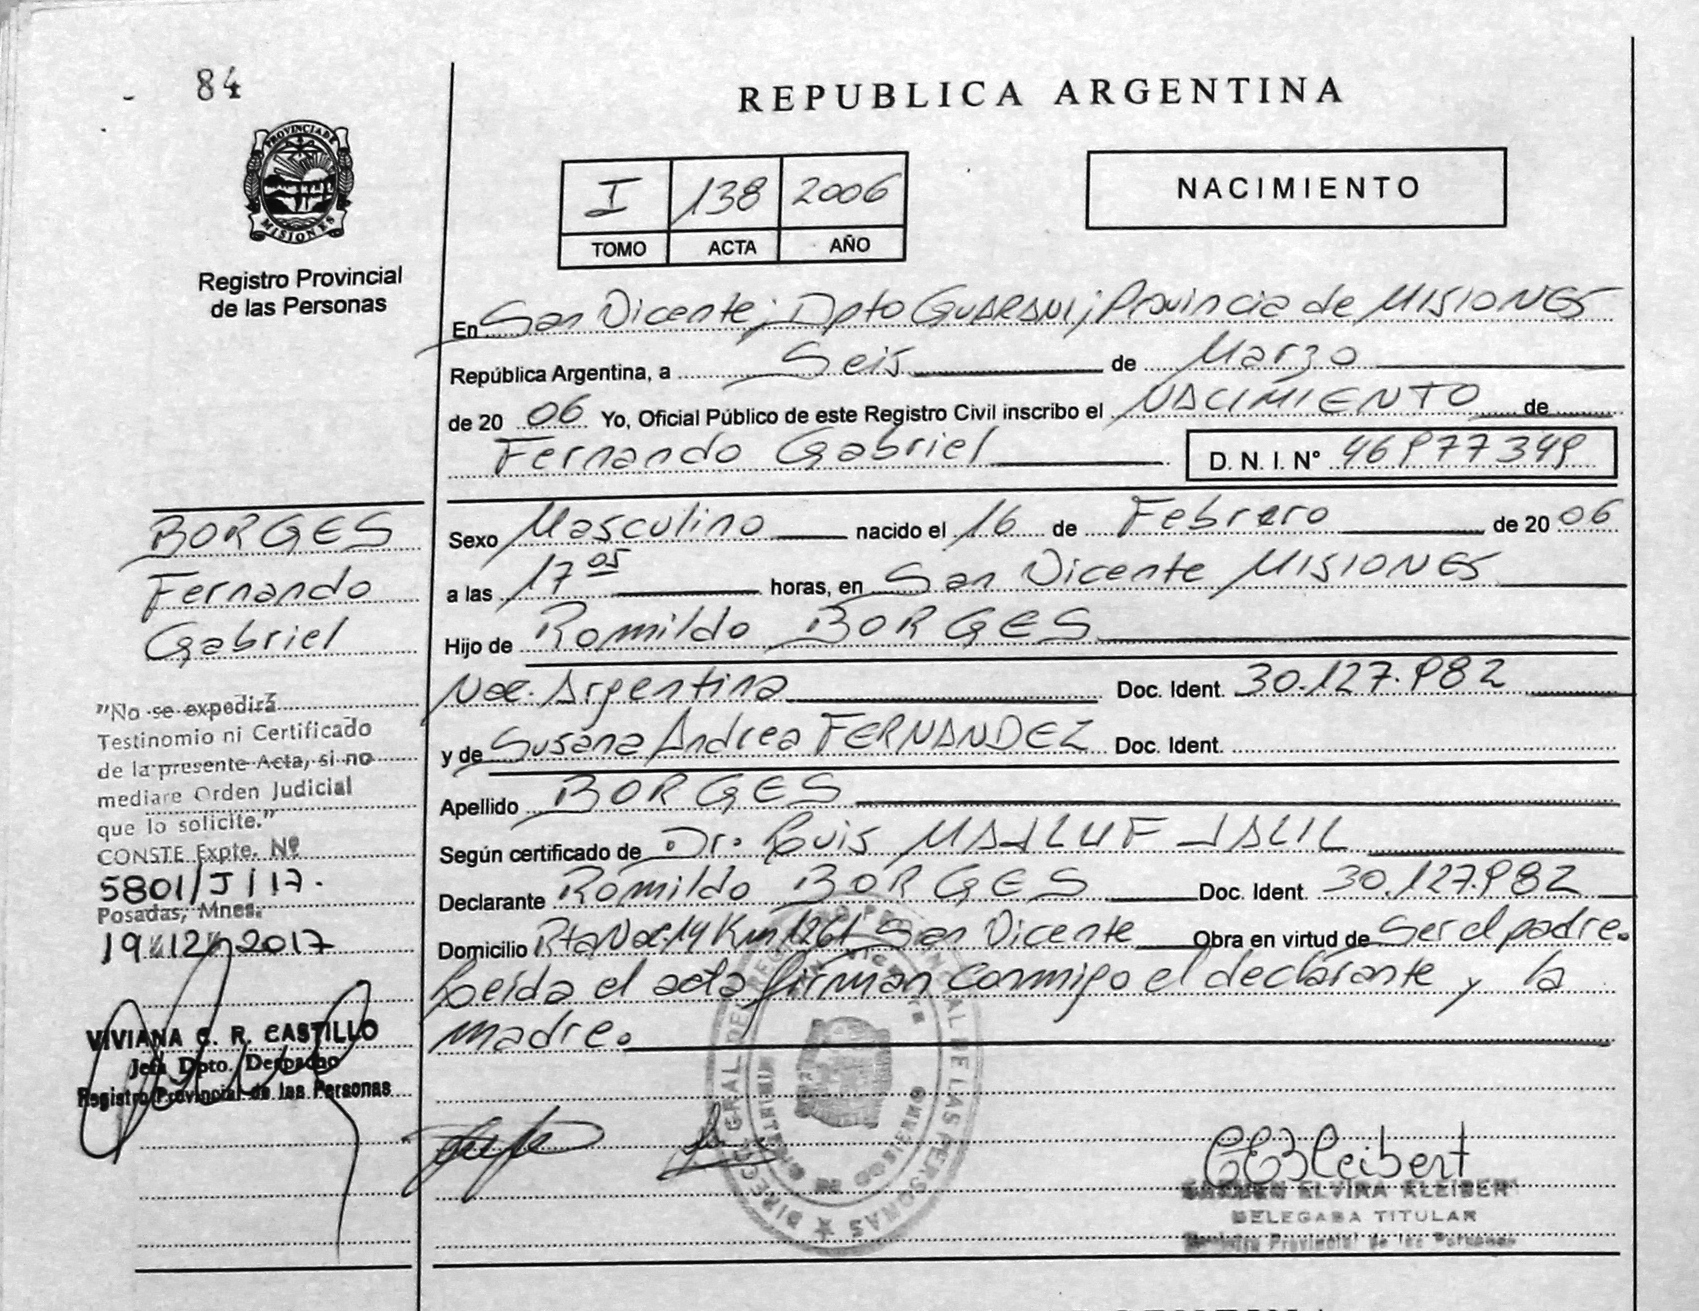 84
PROVINCIA DE
MISIONES
Registro Provincial
de las Personas
REPUBLICA ARGENTINA
I 138 2006
TOMO ACTA AÑO
NACIMIENTO
En San Vicente; Dpto GUARANI; Provincia de MISIONES
República Argentina, a Seis de Marzo
de 20 06 Yo, Oficial Público de este Registro Civil inscribo el NACIMIENTO de
Fernando Gabriel D. N. I. N° 46977349
BORGES
Fernando
Gabriel
Sexo Masculino nacido el 16 de Febrero de 20 06
a las 17 05 horas, en San Vicente MISIONES
Hijo de Romildo BORGES
Nac. Argentina Doc. Ident. 30.127.982
y de Susana Andrea FERNANDEZ Doc. Ident.
Apellido BORGES
Según certificado de Dr. Luis MAJLUF JALIL
Declarante Romildo BORGES Doc. Ident. 30.127.982
Domicilio Rta Nac. 14 Km 1261 San Vicente Obra en virtud de Ser el padre.
Leída el acta firman conmigo el declarante y la
madre.
"No se expedirá
Testinomio ni Certificado
de la presente Acta, si no
mediare Orden Judicial
que lo solicite."
CONSTE Expte. Nº
5801/J/17.
Posadas, Mnes.
19 12 2017
VIVIANA C. R. CASTILLO
Jefa Dpto. Despacho
Registro Provincial de las Personas
DIRECC. GRAL. DEL REGISTRO PROVINCIAL DE LAS PERSONAS
CEKleibert
CARMEN ELVIRA KLEIBERT
DELEGADA TITULAR
Registro Provincial de las Personas